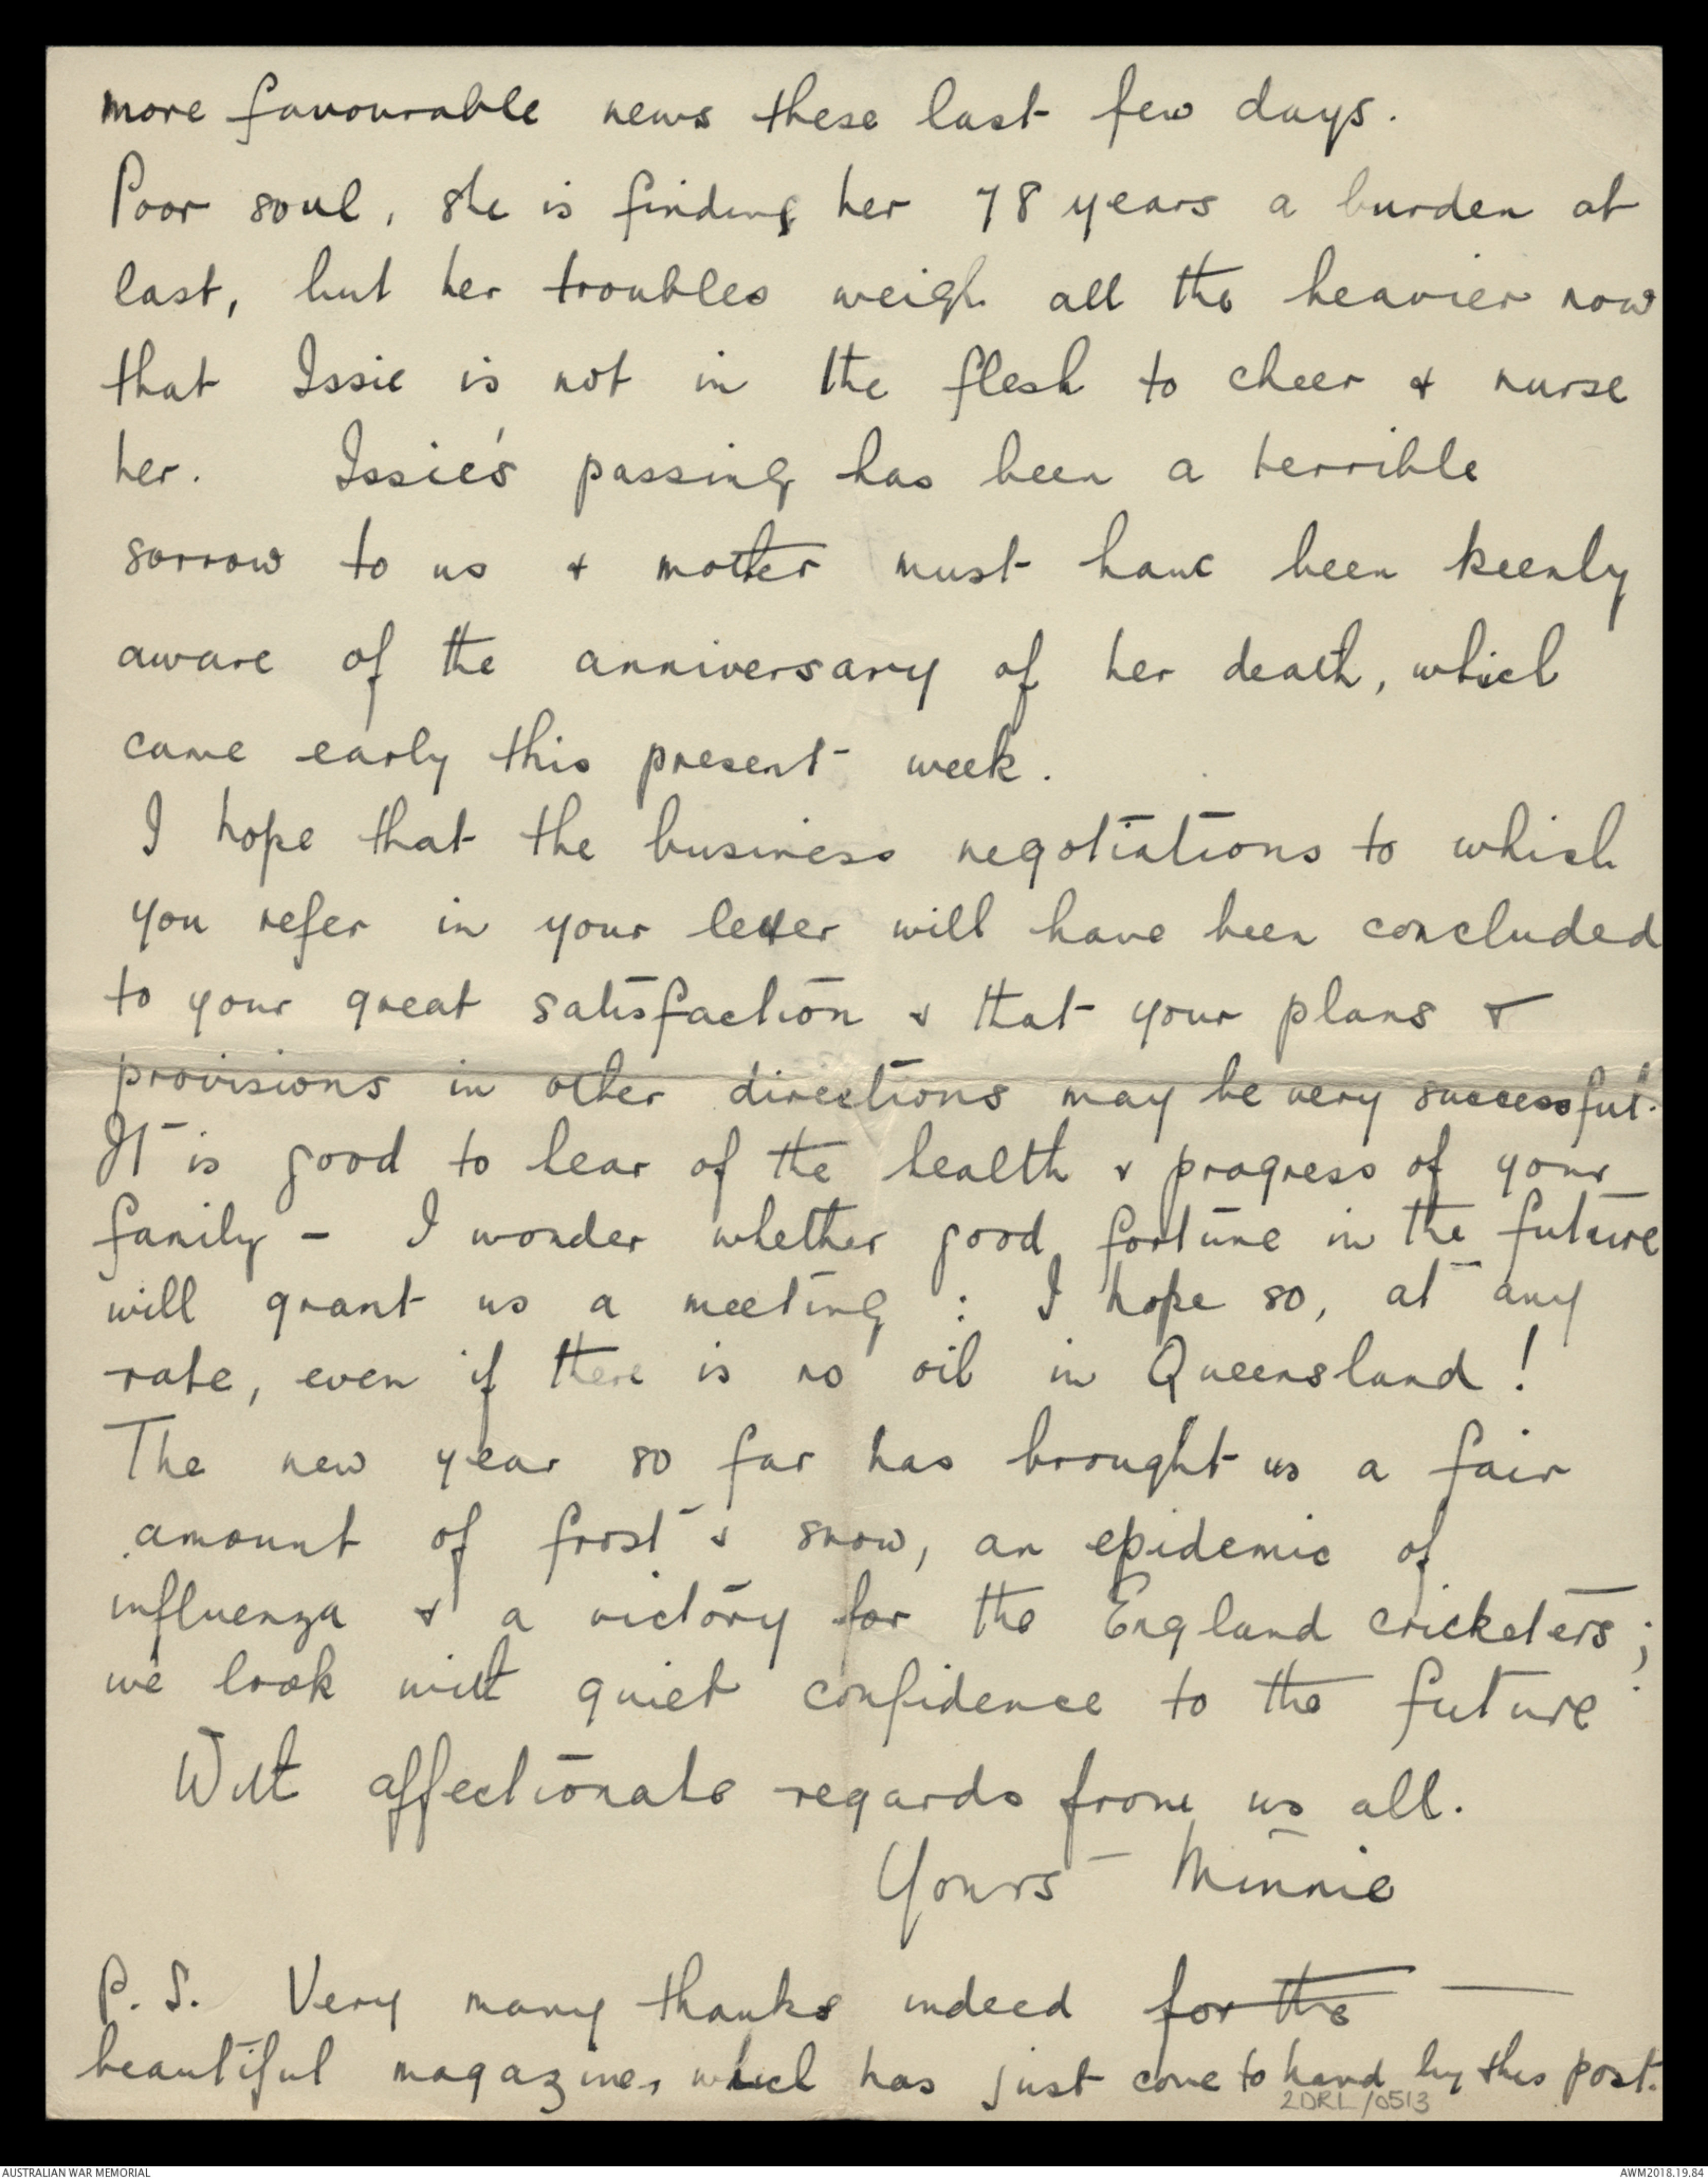 more favourable news these last few days.
Poor soul, she is finding her 78 years a burden at
last, but her troubles weigh all the heavier now
that Issie is not in the flesh to cheer & nurse
her. Issie's passing has been a terrible
sorrow to us & mother must have been keenly
aware of the anniversary of her death, which
came early this present week.
I hope that the business negotiations to which
you refer in your letter will have been concluded
to your great satisfaction & that your plans &
provisions in other directions may be very successful.
It is good to hear of the health & progress of your
family - I wonder whether good fortune in the future
will grant us a meeting : I hope so, at any
rate, even if there is no oil in Queensland!
The new year so far has brought us a fair
amount of frost & snow, an epidemic of
influenza & a victory for the England cricketers;
we look with quiet confidence to the future.
With affectionate regards from us all.
Yours Minnie
P.S. Very many thanks indeed for the
beautiful magazine, which has just come to hand by this post.
2DRL/0513
AUSTRALIAN WAR MEMORIAL
AWM2018.19.84